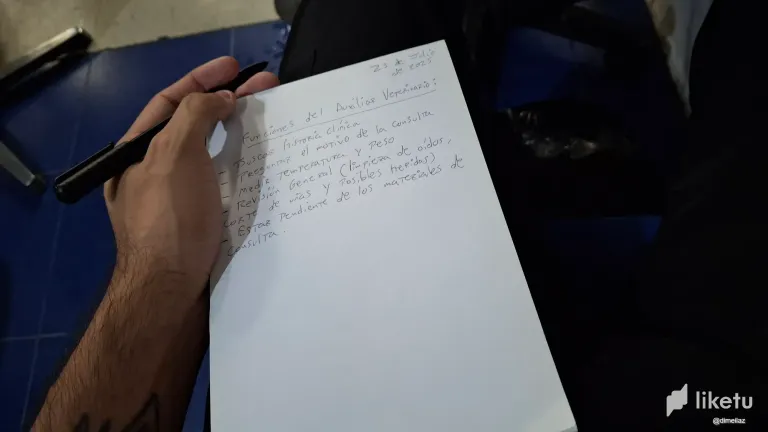 23 de Julio
de 2023
Funciones del Auxiliar Veterinario:
- Buscar Historia clínica
- Preguntar el motivo de la consulta
- Medir Temperatura y Peso
- Revisión General (limpieza de oídos,
corte de uñas y Posibles heridas)
- Estar Pendiente de los materiales de
consulta.
liketu
@dimeilaz